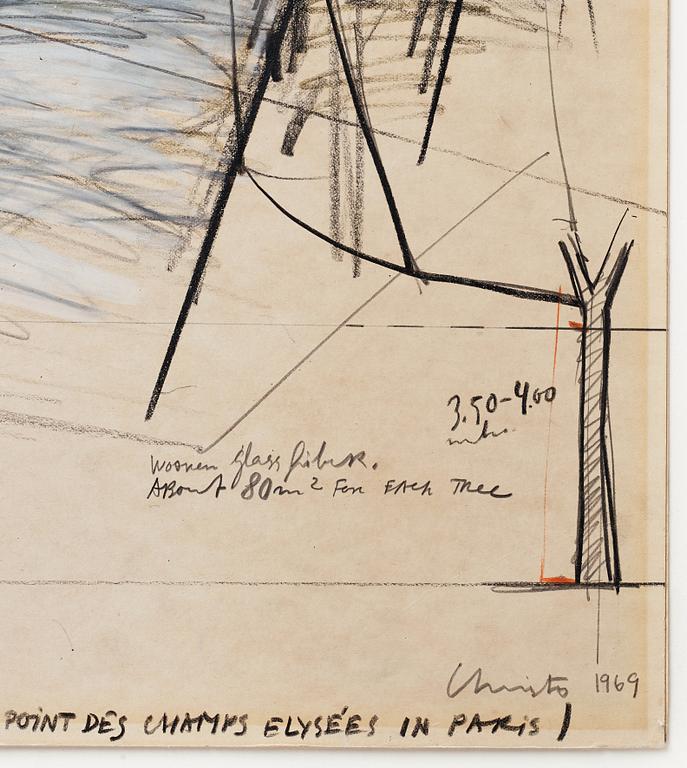 3.50-4.00
mtr.
Wooven glass fiber.
ABout 80m² For EACH Tree
Christo 1969
POINT DES CHAMPS ELYSÉES IN PARIS)